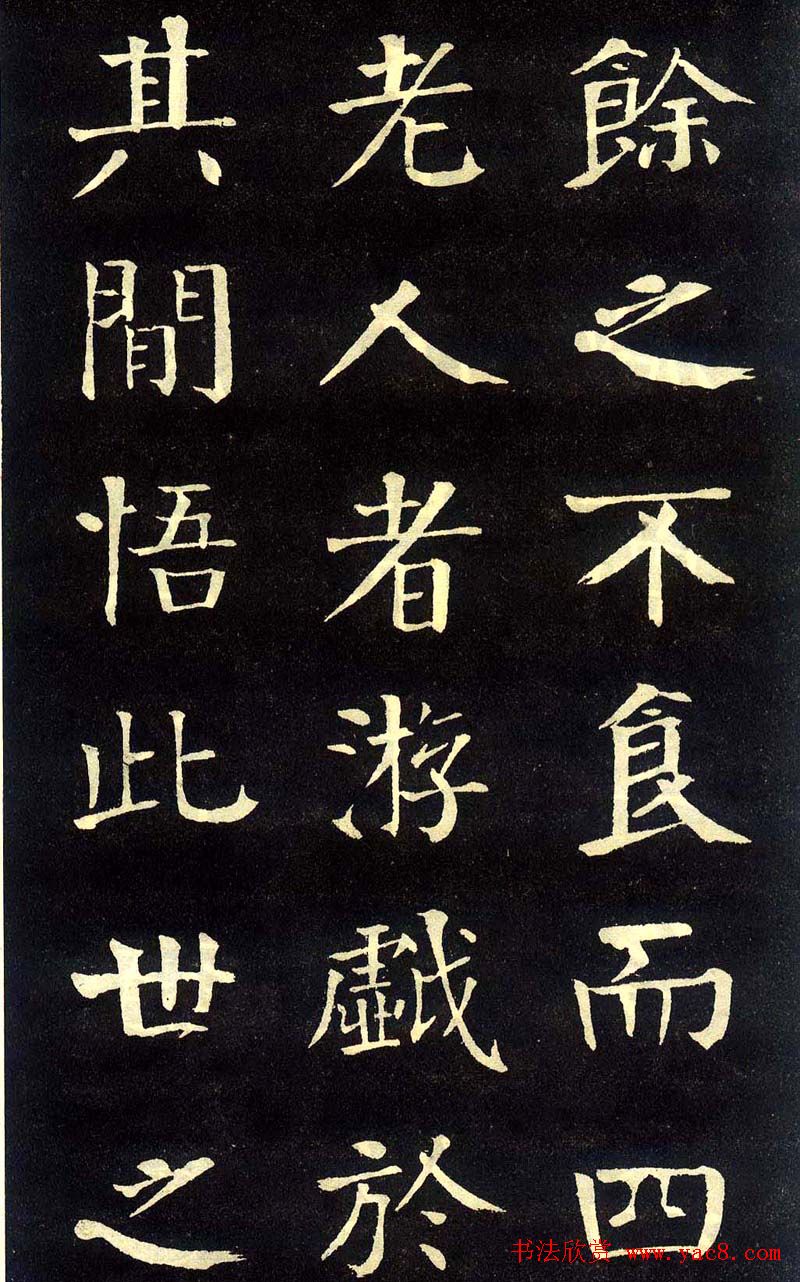 餘之不食而四
老人者游戲於
其間悟此世之
书法欣赏 www.yac8.com